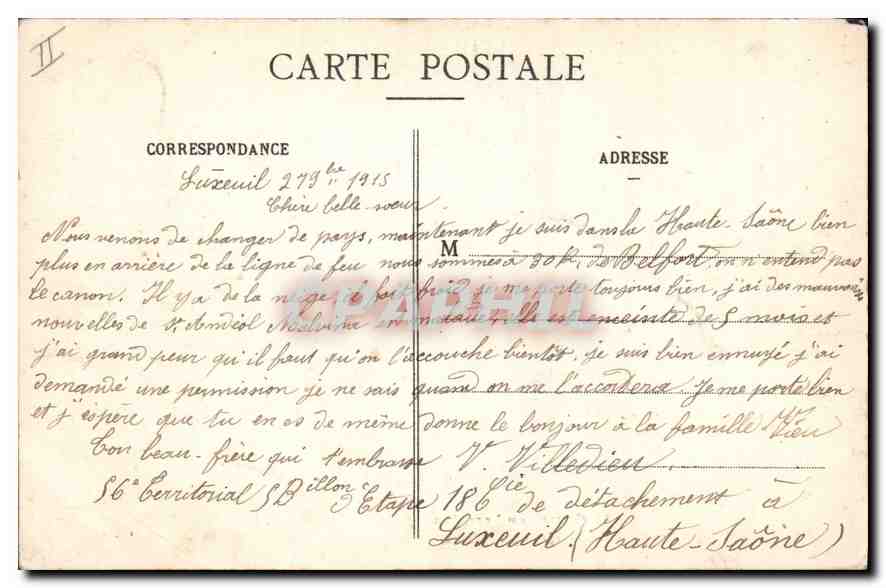 II
CARTE POSTALE
CORRESPONDANCE
ADRESSE
M
Luxeuil 27 9bre 1915
Chère belle-sœur.
Nous venons de changer de pays, maintenant je suis dans la Haute-Saône bien
plus en arrière de la ligne de feu nous sommes à 30 k. de Belfort on n'entend pas
le canon. Il y a de la neige, il fait froid, je me porte toujours bien, j'ai des mauvaises
nouvelles de St Andéol Malvina est malade, elle est enceinte de 5 mois et
j'ai grand peur qu'il faut qu'on l'accouche bientôt, je suis bien ennuyé j'ai
demandé une permission je ne sais quand on me l'accordera. Je me porte bien
et j'espère que tu en es de même donne le bonjour à la famille Vieu
Ton beau-frère qui t'embrasse V. Villedieu.
56e Territorial 5 Billon d'Etape 18 Cie de détachement à
Luxeuil (Haute-Saône)
CPAPHIL